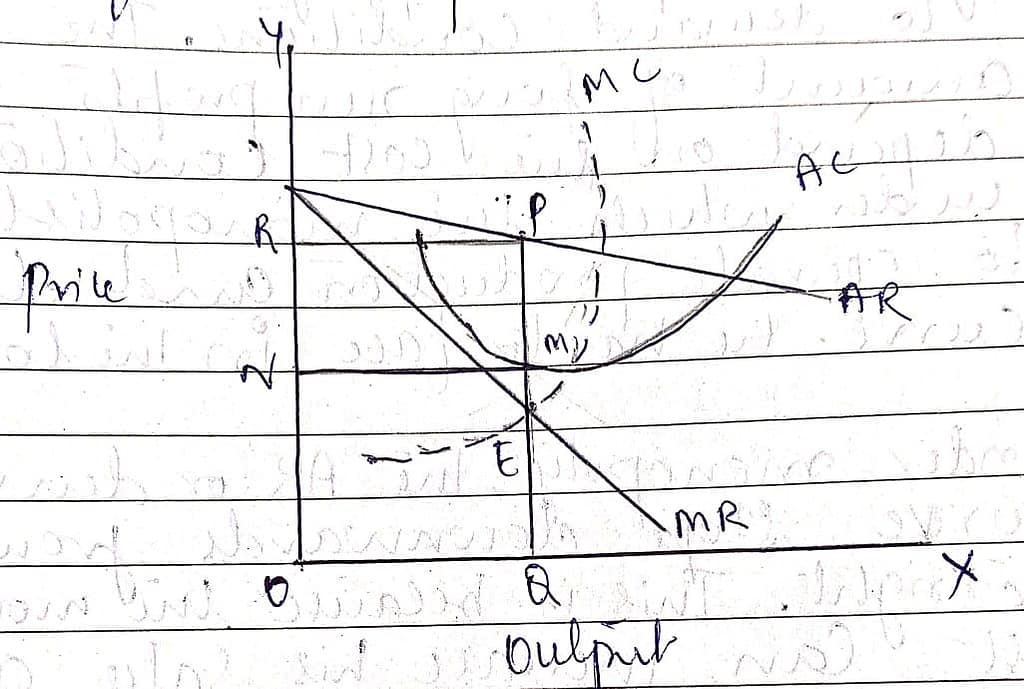 Y
MC
AC
P
R
Price
AR
M
N
E
MR
O
Q
X
Output